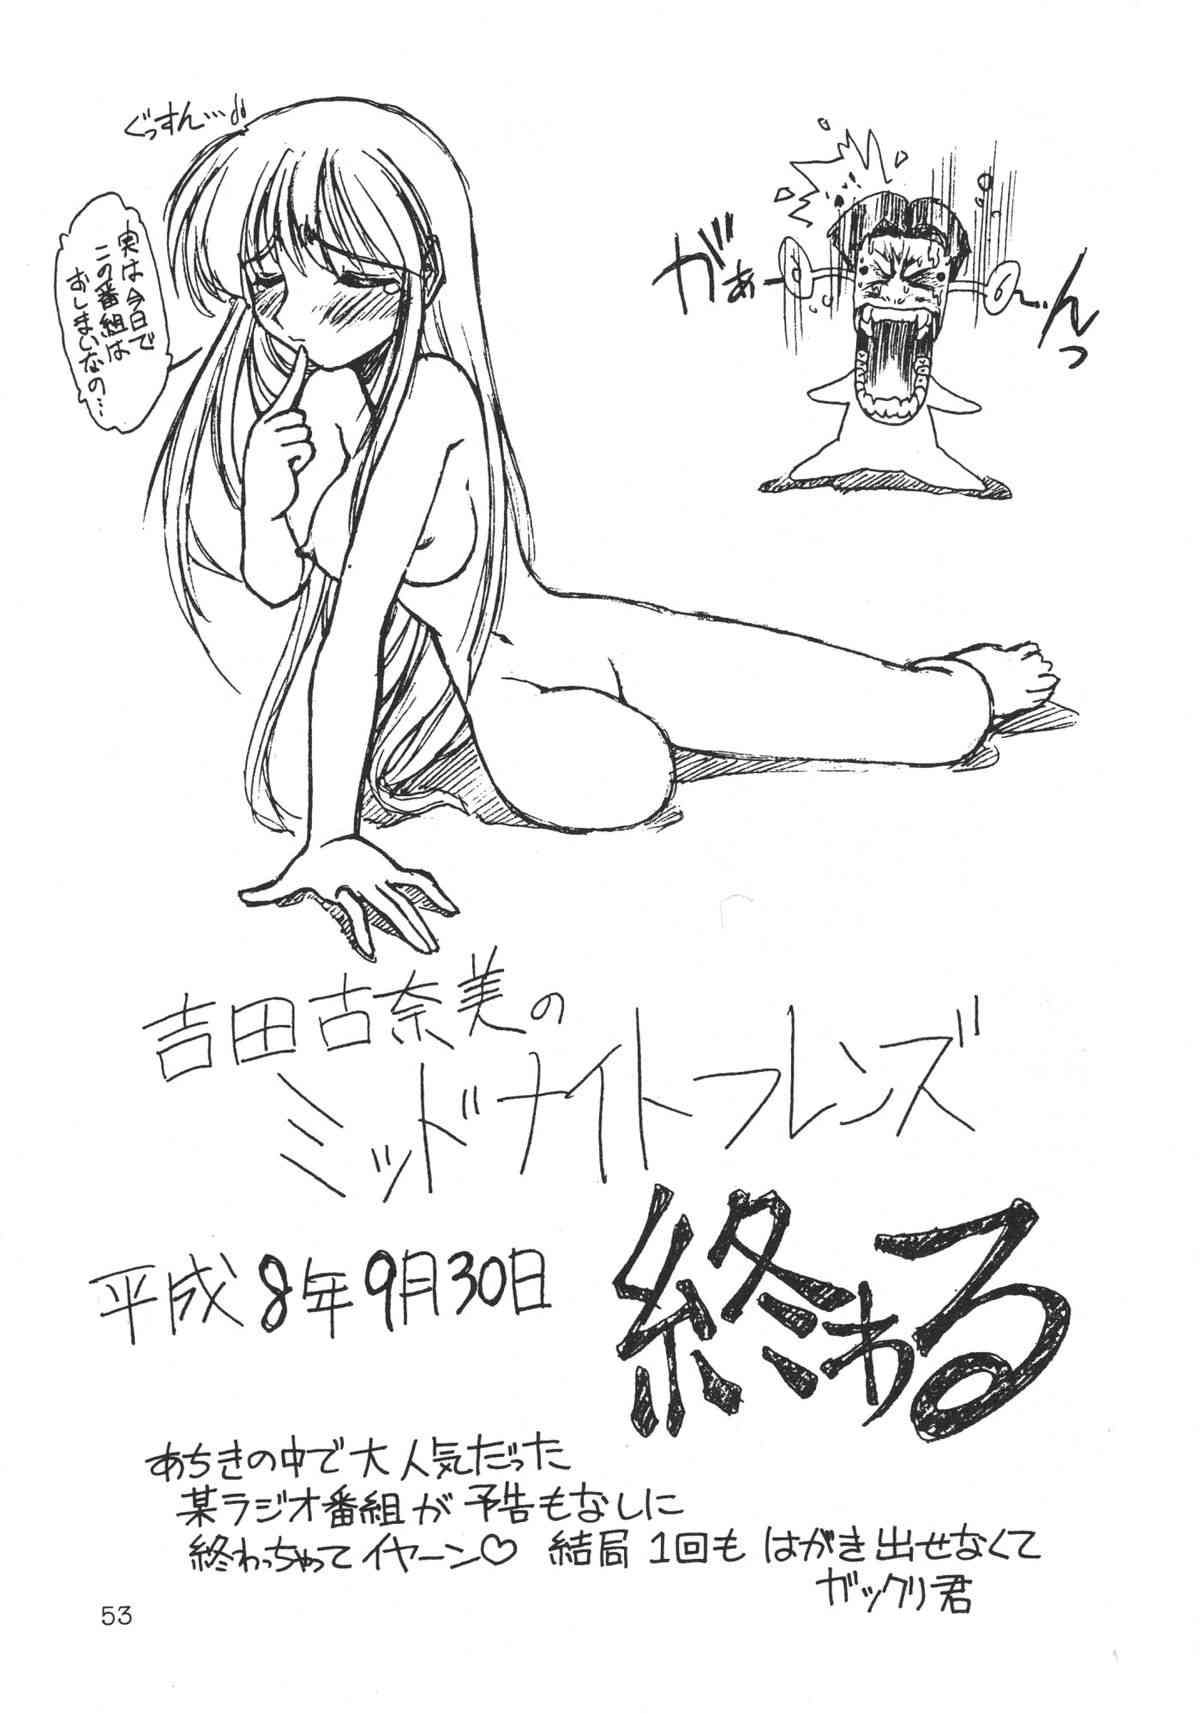 ぐっすん…
実は今日で
この番組は
おしまいなの…
がぁーーんっ
吉田古奈美の
ミッドナイトフレンズ
終わる
平成8年9月30日
あちきの中で大人気だった
某ラジオ番組が予告もなしに
終わっちゃってイヤーン♡ 結局 1回も はがき出せなくて
ガックリ君
53